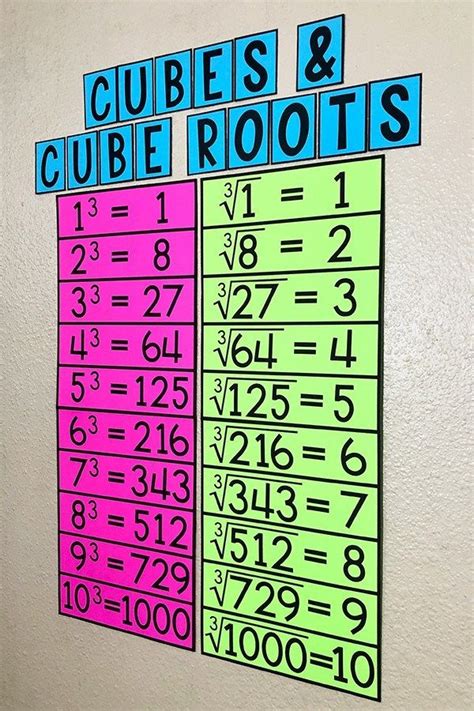 CUBES &
CUBE ROOTS
1³ = 1
2³ = 8
3³ = 27
4³ = 64
5³ = 125
6³ = 216
7³ = 343
8³ = 512
9³ = 729
10³=1000
∛1 = 1
∛8 = 2
∛27 = 3
∛64 = 4
∛125 = 5
∛216 = 6
∛343 = 7
∛512 = 8
∛729 = 9
∛1000=10